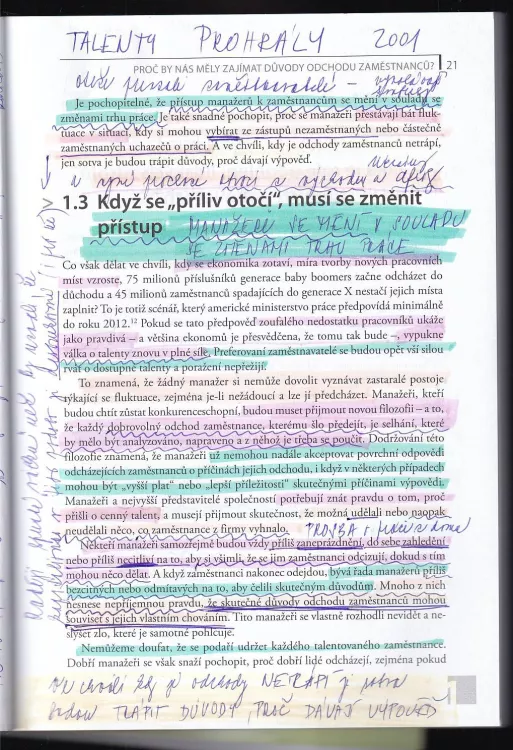 TALENTY PROHRÁLY 2001
PROČ BY NÁS MĚLY ZAJÍMAT DŮVODY ODCHODU ZAMĚSTNANCŮ? 21
Je pochopitelné, že přístup manažerů k zaměstnancům se mění v souladu se
změnami trhu práce. Je také snadné pochopit, proč se manažeři přestávají bát fluk-
tuace v situaci, kdy si mohou vybírat ze zástupů nezaměstnaných nebo částečně
zaměstnaných uchazečů o práci. A ve chvíli, kdy je odchody zaměstnanců netrápí,
jen sotva je budou trápit důvody, proč dávají výpověď.
1.3 Když se „příliv otočí“, musí se změnit
přístup MANAŽEŘI SE MĚNÍ V SOULADU
SE ZMĚNAMI TRHU PRÁCE
Co však dělat ve chvíli, kdy se ekonomika zotaví, míra tvorby nových pracovních
míst vzroste, 75 milionů příslušníků generace baby boomers začne odcházet do
důchodu a 45 milionů zaměstnanců spadajících do generace X nestačí jejich místa
zaplnit? To je totiž scénář, který americké ministerstvo práce předpovídá minimálně
do roku 2012.¹² Pokud se tato předpověď zoufalého nedostatku pracovníků ukáže
jako pravdivá – a většina ekonomů je přesvědčena, že tomu tak bude –, vypukne
válka o talenty znovu v plné síle. Preferovaní zaměstnavatelé se budou opět vší silou
rvát o dostupné talenty a poražení nepřežijí.
To znamená, že žádný manažer si nemůže dovolit vyznávat zastaralé postoje
týkající se fluktuace, zejména je-li nežádoucí a lze jí předcházet. Manažeři, kteří
budou chtít zůstat konkurenceschopní, budou muset přijmout novou filozofii – a to,
že každý dobrovolný odchod zaměstnance, kterému šlo předejít, je selhání, které
by mělo být analyzováno, napraveno a z něhož je třeba se poučit. Dodržování této
filozofie znamená, že manažeři už nemohou nadále akceptovat povrchní odpovědi
odcházejících zaměstnanců o příčinách jejich odchodu, i když v některých případech
mohou být „vyšší plat“ nebo „lepší příležitosti“ skutečnými příčinami výpovědi.
Manažeři a nejvyšší představitelé společností potřebují znát pravdu o tom, proč
přišli o cenný talent, a musejí přijmout skutečnost, že možná udělali nebo naopak
neudělali něco, co zaměstnance z firmy vyhnalo.
Někteří manažeři samozřejmě budou vždy příliš zaneprázdnění, do sebe zahledění
nebo příliš necitliví na to, aby si všimli, že se jim zaměstnanci odcizují, dokud s tím
mohou něco dělat. A když zaměstnanci nakonec odejdou, bývá řada manažerů příliš
bezcitných nebo odmítavých na to, aby čelili skutečným důvodům. Mnoho z nich
nesnese nepříjemnou pravdu, že skutečné důvody odchodu zaměstnanců mohou
souviset s jejich vlastním chováním. Tito manažeři se vlastně rozhodli nevidět a ne-
slyšet zlo, které je samotné pohlcuje.
Nemůžeme doufat, že se podaří udržet každého talentovaného zaměstnance.
Dobří manažeři se však snaží pochopit, proč dobří lidé odcházejí, zejména pokud
Ve chvíli kdy je odchody NETRÁPÍ je sotva
budou TRÁPIT DŮVODY, PROČ DÁVAJÍ VÝPOVĚĎ